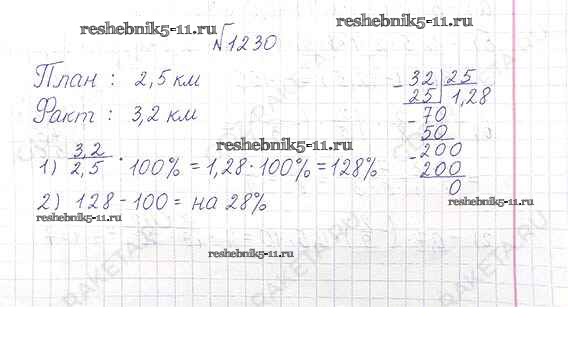 reshebnik5-11.ru
reshebnik5-11.ru
№1230
План : 2,5 км
Факт : 3,2 км
reshebnik5-11.ru
1) 3,2/2,5 · 100% = 1,28 · 100% = 128%
2) 128 - 100 = на 28%
reshebnik5-11.ru
- 32 | 25
25 | 1,28
- 70
50
- 200
200
0
reshebnik5-11.ru
reshebnik5-11.ru
RAKETA.RU
RAKETA.RU